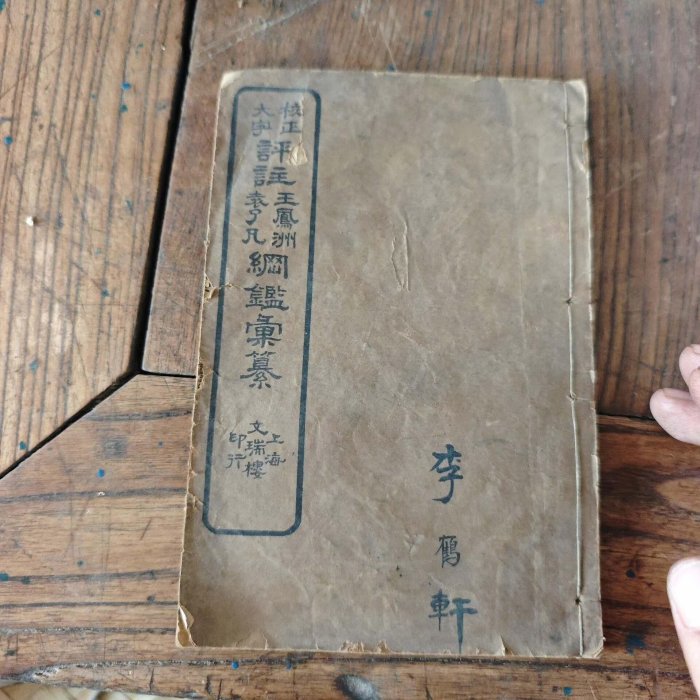 校正
大字
評註
王鳳洲
袁了凡
綱鑑彙纂
上海
文瑞樓
印行
李鶴軒